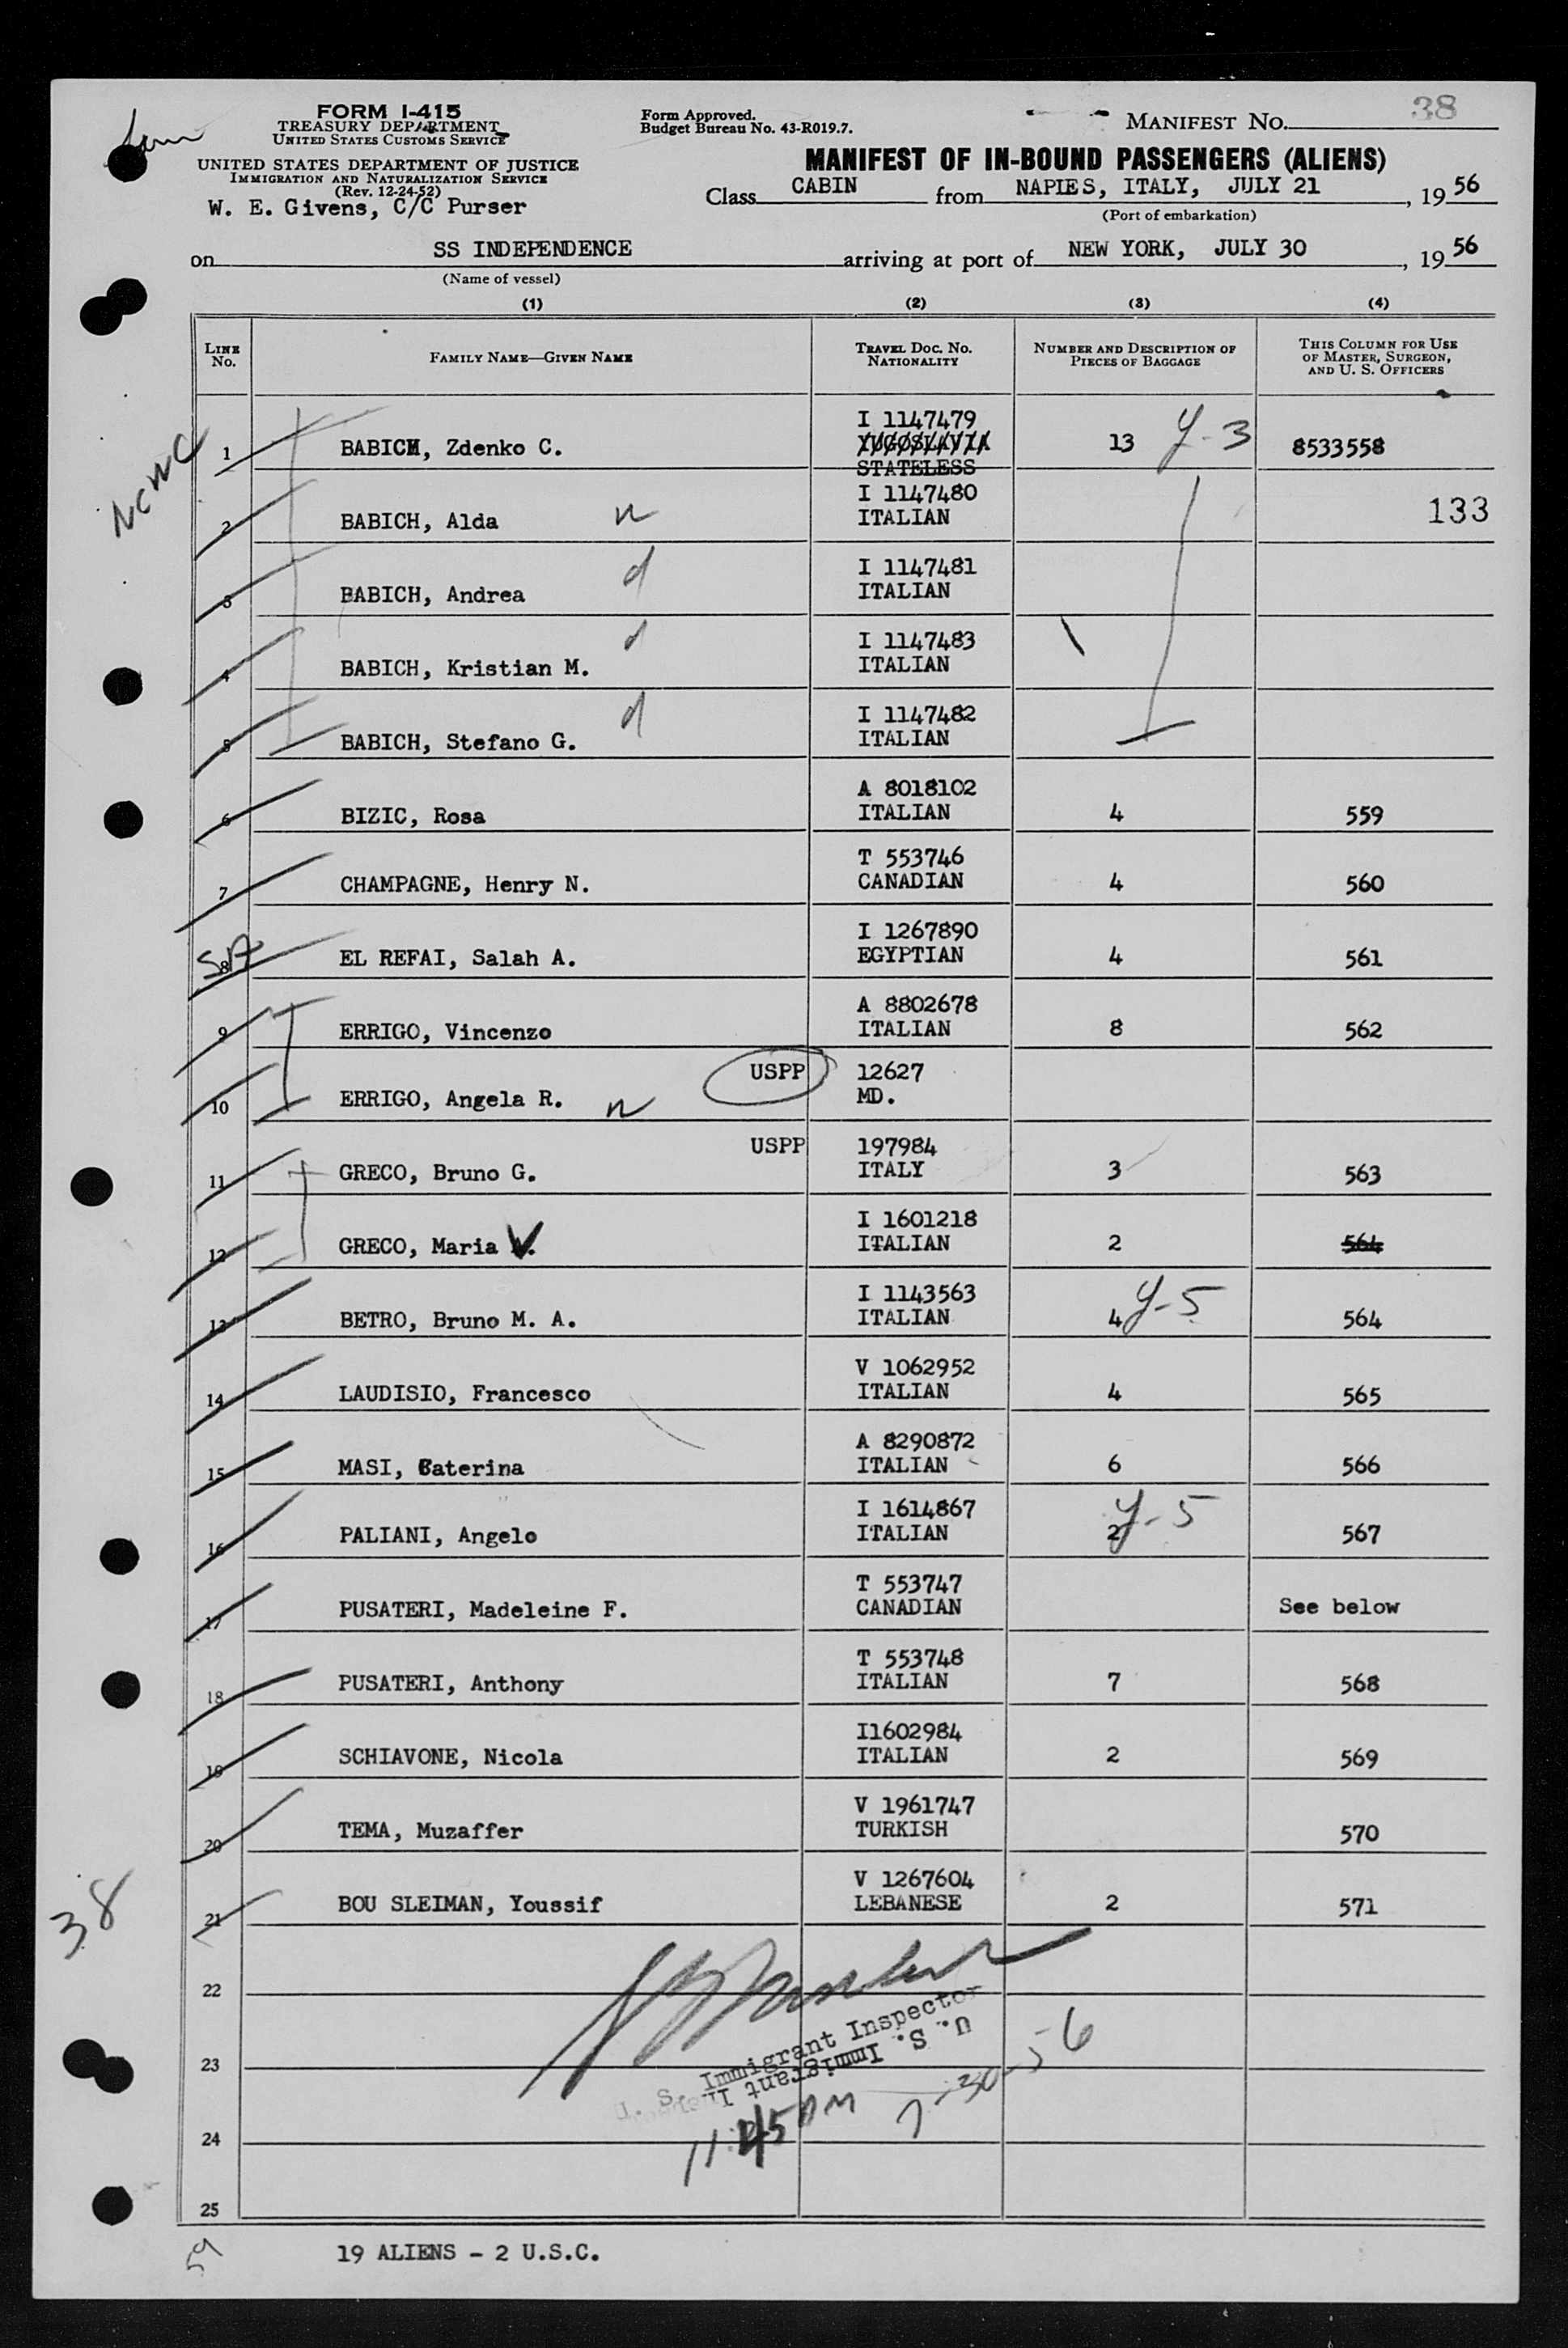 FORM I-415
TREASURY DEPARTMENT
UNITED STATES CUSTOMS SERVICE
UNITED STATES DEPARTMENT OF JUSTICE
IMMIGRATION AND NATURALIZATION SERVICE
(Rev. 12-24-52)
W. E. Givens, C/C Purser
Form Approved.
Budget Bureau No. 43-R019.7.
MANIFEST NO. 38
MANIFEST OF IN-BOUND PASSENGERS (ALIENS)
Class CABIN from NAPIES, ITALY, JULY 21, 1956
(Port of embarkation)
on SS INDEPENDENCE arriving at port of NEW YORK, JULY 30, 1956
(Name of vessel)
(1) (2) (3) (4)
LINE No. FAMILY NAME—GIVEN NAME TRAVEL DOC. NO. NATIONALITY NUMBER AND DESCRIPTION OF PIECES OF BAGGAGE THIS COLUMN FOR USE OF MASTER, SURGEON, AND U. S. OFFICERS
NCWC
1 BABICH, Zdenko C. I 1147479 YUGOSLAVIA STATELESS 13 Y-3 8533558
2 BABICH, Alda n I 1147480 ITALIAN 133
3 BABICH, Andrea d I 1147481 ITALIAN
4 BABICH, Kristian M. d I 1147483 ITALIAN
5 BABICH, Stefano G. d I 1147482 ITALIAN
6 BIZIC, Rosa A 8018102 ITALIAN 4 559
7 CHAMPAGNE, Henry N. T 553746 CANADIAN 4 560
SA 8 EL REFAI, Salah A. I 1267890 EGYPTIAN 4 561
9 ERRIGO, Vincenzo A 8802678 ITALIAN 8 562
10 ERRIGO, Angela R. n USPP 12627 MD.
11 GRECO, Bruno G. USPP 197984 ITALY 3 563
12 GRECO, Maria V. I 1601218 ITALIAN 2 564
13 BETRO, Bruno M. A. I 1143563 ITALIAN 4 Y-5 564
14 LAUDISIO, Francesco V 1062952 ITALIAN 4 565
15 MASI, Caterina A 8290872 ITALIAN 6 566
16 PALIANI, Angelo I 1614867 ITALIAN 2 Y-5 567
17 PUSATERI, Madeleine F. T 553747 CANADIAN See below
18 PUSATERI, Anthony T 553748 ITALIAN 7 568
19 SCHIAVONE, Nicola I1602984 ITALIAN 2 569
20 TEMA, Muzaffer V 1961747 TURKISH 570
21 BOU SLEIMAN, Youssif V 1267604 LEBANESE 2 571
38
22
23
U. S. Immigrant Inspector
U. S. Immigrant Inspector
11:45 AM 7-30-56
24
25
59
19 ALIENS - 2 U.S.C.